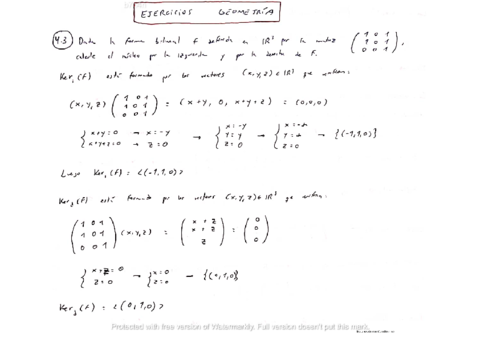 EJERCICIOS GEOMETRÍA
4.3 Dada la forma bilineal f definida en IR³ por la matriz (1 0 1
1 0 1
0 0 1),
calcule el núcleo por la izquierda y por la derecha de f.
Ker₁(f) está formado por los vectores (x,y,z) ∈ IR³ que
(x,y,z) (1 0 1
1 0 1
0 0 1) = (x+y, 0, x+y+z) = (0,0,0)
{x+y=0 → x=-y
x+y+z=0 → z=0 → {x=-y
y=y
z=0 → {x=-α
y=α
z=0 → {(-1,1,0)}
Luego Ker₁(f) = <(-1,1,0)>
Ker₂(f) está formado por los vectores (x,y,z) ∈ IR³ que
(1 0 1
1 0 1
0 0 1) (x,y,z) = (x+z
x+z
z) = (0
0
0)
{x+z=0
z=0 → {x=0
z=0 → {(0,1,0)}
Ker₂(f) = <(0,1,0)>
Protected with free version of Watermarkly. Full version doesn't put this mark.